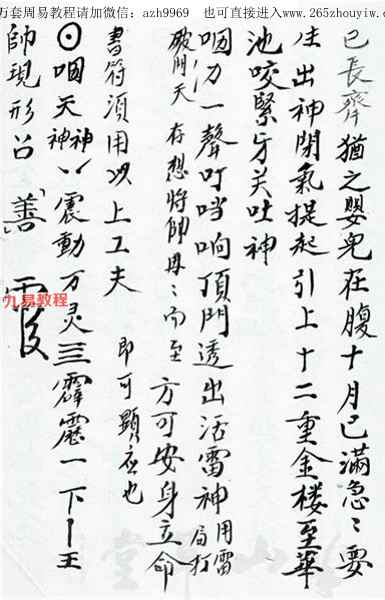 万套周易教程请加微信：azh9969 也可直接进入www.265zhouyiw.c
已長齊猶之嬰兒在腹十月已滿急〻要
出神閉氣提起引上十二重金楼至華
池咬緊牙关吐神
咽 一聲叮噹响頂門透出活雷神用雷局打
破門天 存想將帥 〻而至 方可安身立命
書符須用以上工夫 即可顯应也
咽天神神 震動万灵 霹靂一下 王
帥現形 善
九易教程